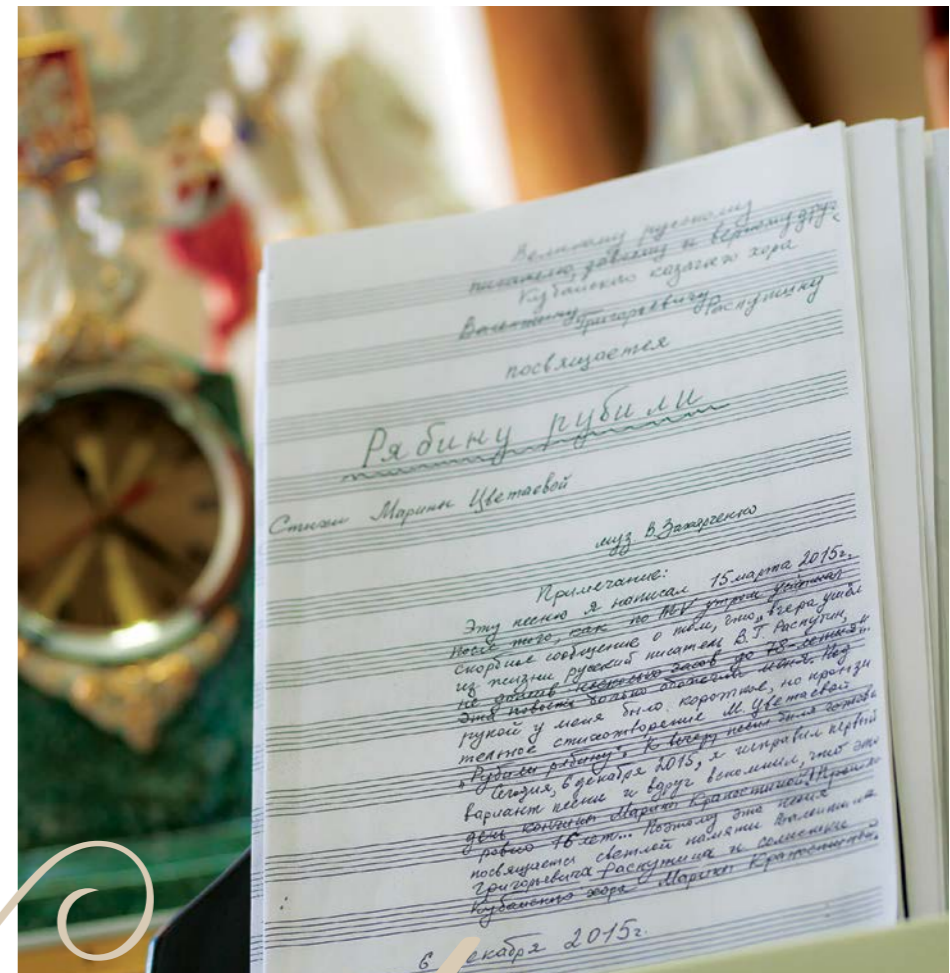 Великому русскому
писателю, давнему и верному другу
Кубанского казачьего хора
Валентину Григорьевичу Распутину
посвящается
Рябину рубили
Стихи Марины Цветаевой
муз В. Захарченко
Примечание:
Эту песню я написал 15 марта 2015г.
После того, как по TV утром услышал
скорбное сообщение о том, что „вчера ушёл
из жизни русский писатель В.Г. Распутин,
не дожив несколько часов до 78-летия"..
Эта новость больно обожгла меня. Под
рукой у меня было короткое, но пронзи
тельное стихотворение М. Цветаевой
„Рубили рябину". К вечеру песня была готова
Сегодня, 6 декабря 2015, я исправил первый
вариант песни и вдруг вспомнил, что это
день кончины Марины Крапостиной! Прошло
ровно 16 лет... Поэтому эта песня
посвящается светлой памяти Валентина
Григорьевича Распутина и солистки
Кубанского хора Марины Крапостиной.
6 декабря 2015г.